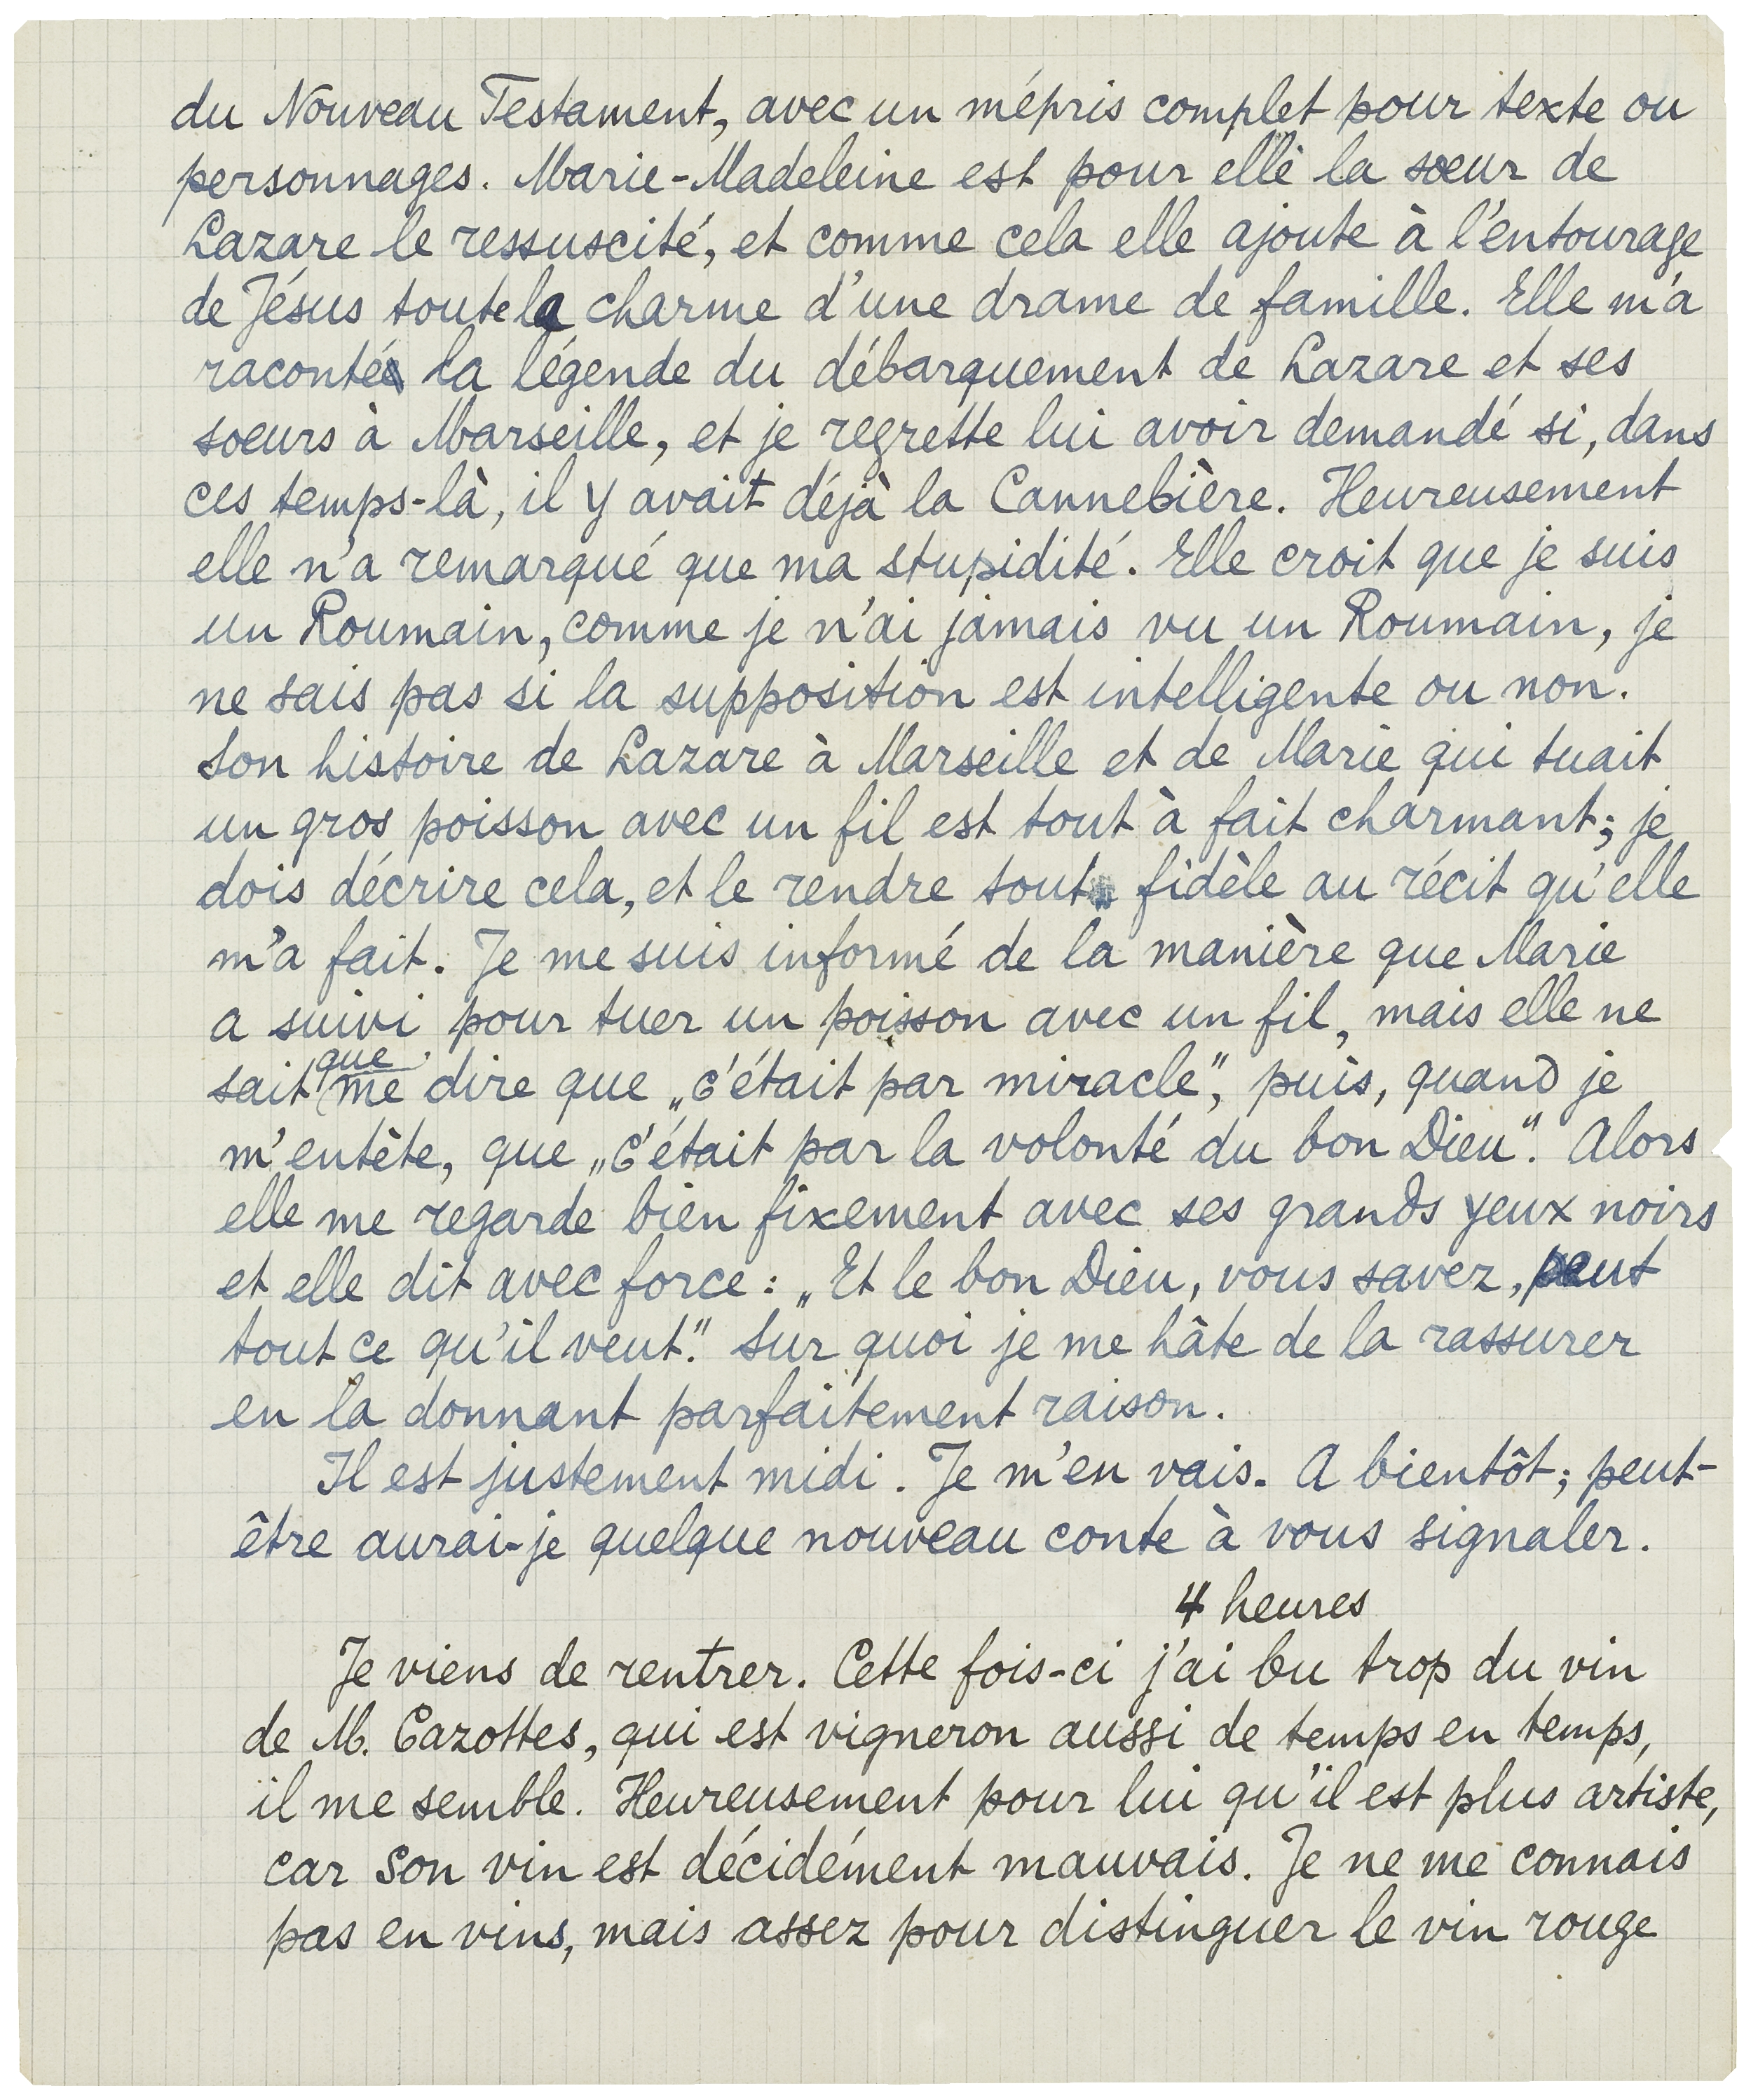 du Nouveau Testament, avec un mépris complet pour texte ou
personnages. Marie-Madeleine est pour elle la soeur de
Lazare le ressuscité, et comme cela elle ajoute à l'entourage
de Jésus toute la charme d'une drame de famille. Elle m'a
raconté la légende du débarquement de Lazare et ses
soeurs à Marseille, et je regrette lui avoir demandé si, dans
ces temps-là, il y avait déjà la Cannebière. Heureusement
elle n'a remarqué que ma stupidité. Elle croit que je suis
un Roumain, comme je n'ai jamais vu un Roumain, je
ne sais pas si la supposition est intelligente ou non.
Son histoire de Lazare à Marseille et de Marie qui tuait
un gros poisson avec un fil est tout à fait charmant; je
dois décrire cela, et le rendre tout fidèle au récit qu'elle
m'a fait. Je me suis informé de la manière que Marie
a suivi pour tuer un poisson avec un fil, mais elle ne
sait que me dire que „c'était par miracle", puis, quand je
m'entête, que „c'était par la volonté du bon Dieu". Alors
elle me regarde bien fixement avec ses grands yeux noirs
et elle dit avec force: „Et le bon Dieu, vous savez, peut
tout ce qu'il veut." Sur quoi je me hâte de la rassurer
en la donnant parfaitement raison.
Il est justement midi. Je m'en vais. A bientôt; peut-
être aurai-je quelque nouveau conte à vous signaler.
4 heures
Je viens de rentrer. Cette fois-ci j'ai bu trop du vin
de M. Cazottes, qui est vigneron aussi de temps en temps,
il me semble. Heureusement pour lui qu'il est plus artiste,
car son vin est décidément mauvais. Je ne me connais
pas en vins, mais assez pour distinguer le vin rouge